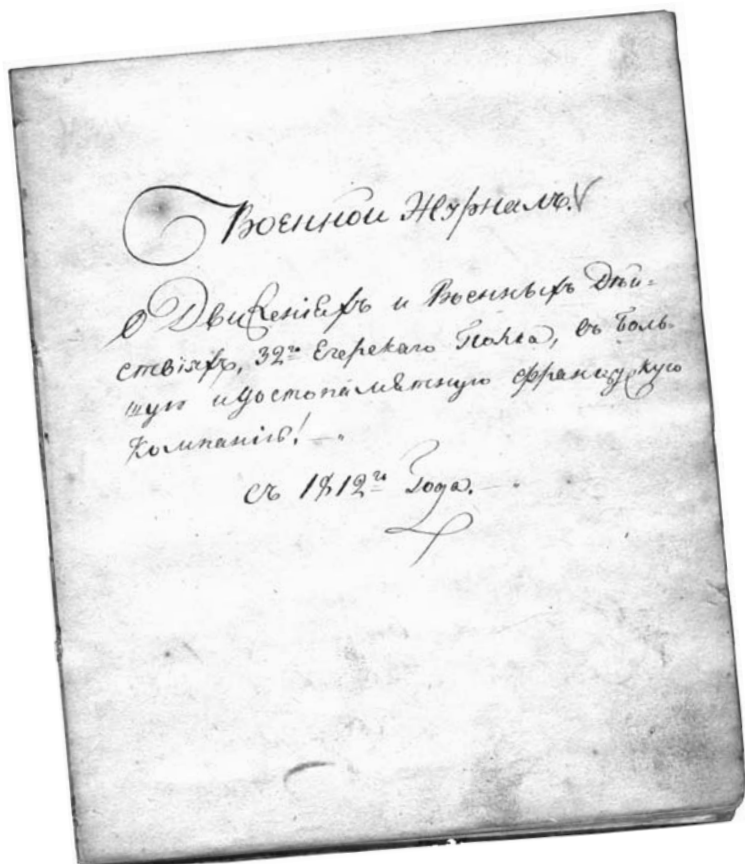 Военной Журналъ.
О Движеніехъ и Военныхъ Дѣй-
ствіяхъ, 32го Егерскаго Полка, въ Боль-
шую и достопамѣтную французкую
Компанію! —.
съ 1812го Года.